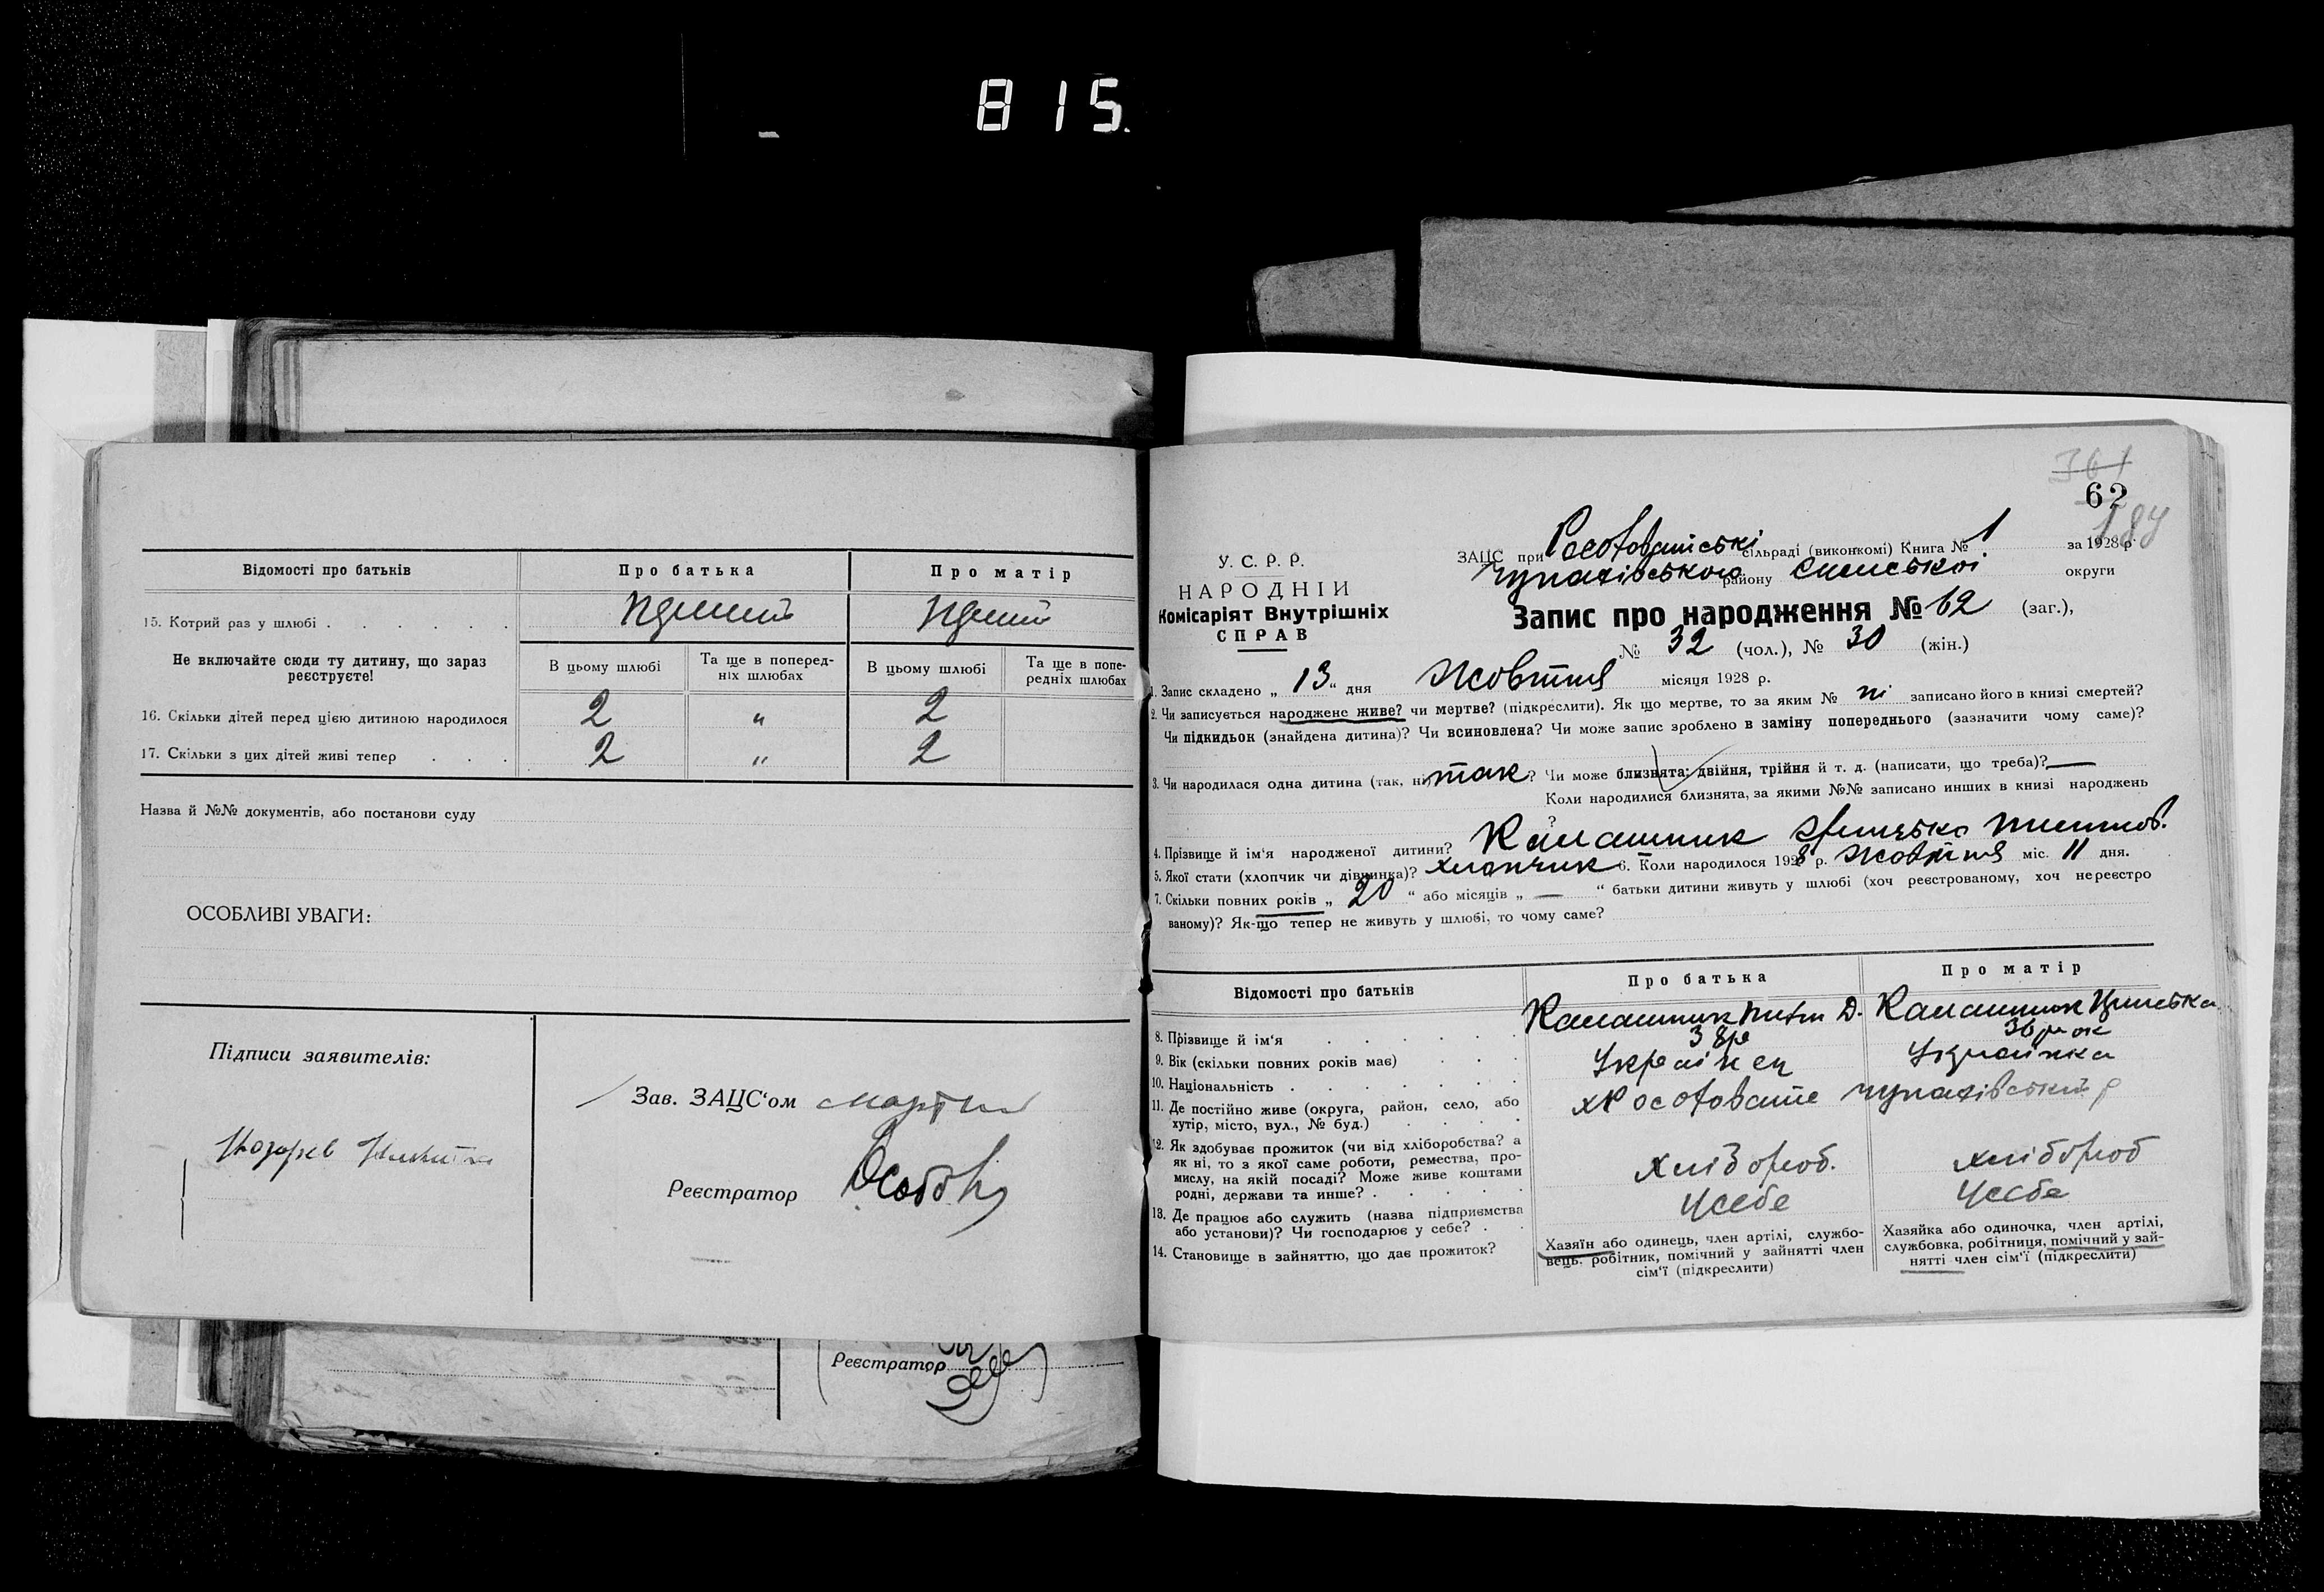 815.
Відомості про батьків
Про батька
Про матір
15. Котрий раз у шлюбі . . . . . .
Не включайте сюди ту дитину, що зараз
реєструєте!
В цьому шлюбі
Та ще в поперед-
ніх шлюбах
В цьому шлюбі
Та ще в попе-
редніх шлюбах
16. Скільки дітей перед цією дитиною народилося 2 " 2
17. Скільки з цих дітей живі тепер . . . 2 " 2
Назва й №№ документів, або постанови суду
ОСОБЛИВІ УВАГИ:
Підписи заявителів:
Зав. ЗАЦС'ом
Реєстратор
Реєстратор
361
62
184
У. С. Р. Р.
НАРОДНІЙ
Комісаріят Внутрішніх
СПРАВ
ЗАЦС при сільраді (виконкомі) Книга № 1 за 1928 р.
району округи
Запис про народження № 62 (заг.),
№ 32 (чол.), № 30 (жін.)
1. Запис складено „ 13 “ дня Жовтня місяця 1928 р.
2. Чи записується народжене живе? чи мертве? (підкреслити). Як що мертве, то за яким № ні записано його в книзі смертей?
Чи підкидьок (знайдена дитина)? Чи всиновлена? Чи може запис зроблено в заміну попереднього (зазначити чому саме)?
3. Чи народилася одна дитина (так, ні) так ? Чи може близнята: двійня, трійня й т. д. (написати, що треба)? —
Коли народилися близнята, за якими №№ записано инших в книзі народжень
?
4. Прізвище й ім'я народженої дитини? Калашник
5. Якої стати (хлопчик чи дівчинка)? хлопчик 6. Коли народилося 1928 р. Жовтня міс. 11 дня.
7. Скільки повних років „ 20 “ або місяців „ — “ батьки дитини живуть у шлюбі (хоч реєстрованому, хоч нереєстро
ваному)? Як-що тепер не живуть у шлюбі, то чому саме?
Відомості про батьків
Про батька
Про матір
8. Прізвище й ім'я . . . . . . Калашник Д. Калашник
9. Вік (скільки повних років має) . . .
10. Національність . . . . . . . Українец Українка
11. Де постійно живе (округа, район, село, або
хутір, місто, вул., № буд.) . . . .
12. Як здобуває прожиток (чи від хліборобства? а
як ні, то з якої саме роботи, ремества, про-
мислу, на якій посаді? Може живе коштами
родні, держави та инше? . . . . .
хлібороб. хлібороб
13. Де працює або служить (назва підприємства
або установи)? Чи господарює у себе? . .
У себе У себе
14. Становище в зайняттю, що дає прожиток?
Хазяїн або одинець, член артілі, службо-
вець, робітник, помічний у зайнятті член
сім'ї (підкреслити)
Хазяйка або одиночка, член артілі,
службовка, робітниця, помічний у зай-
нятті член сім'ї (підкреслити)